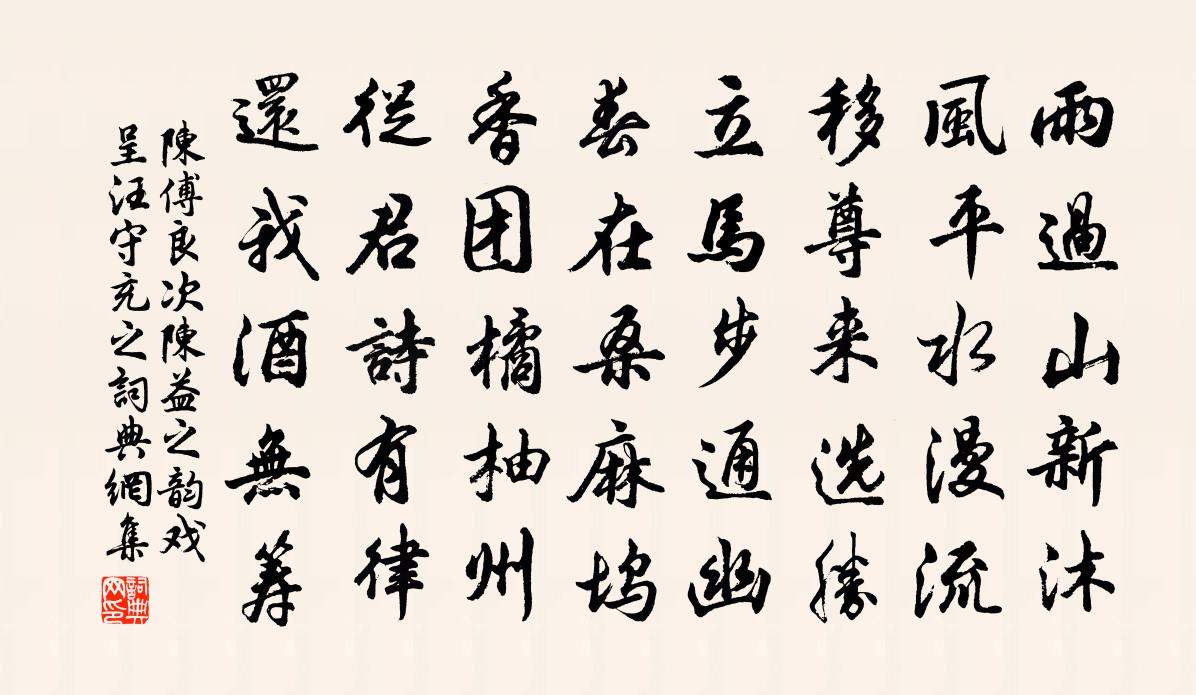 雨過山新沐
風平水漫流
移尊来选勝
立馬步通幽
春在桑麻坞
香团橘柚州
從君詩有律
還我酒無筹
陳傅良次陳益之韵戏
呈汪守充之詞典網集
詞典网印